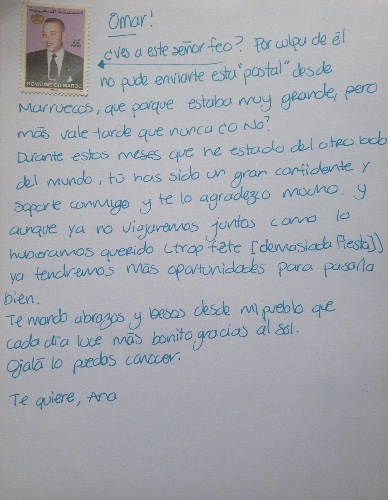 المملكة المغربية
ROYAUME DU MAROC
Omar!
¿ves a este señor feo? Por culpa de él
no pude enviarte esta "postal" desde
Marruecos, que porque estaba muy grande, pero
más vale tarde que nunca ¿O No?
Durante estos meses que he estado del otro lado
del mundo, tú has sido un gran confidente y
soporte conmigo y te lo agradezco mucho. y
aunque ya no viajaremos juntos como lo
hubieramos querido (trop fête [demasiada fiesta])
ya tendremos más oportunidades para pasarla
bien.
Te mando abrazos y besos desde mi pueblo que
cada día luce más bonito gracias al sol.
Ojalá lo puedas conocer.
Te quiere, Ana